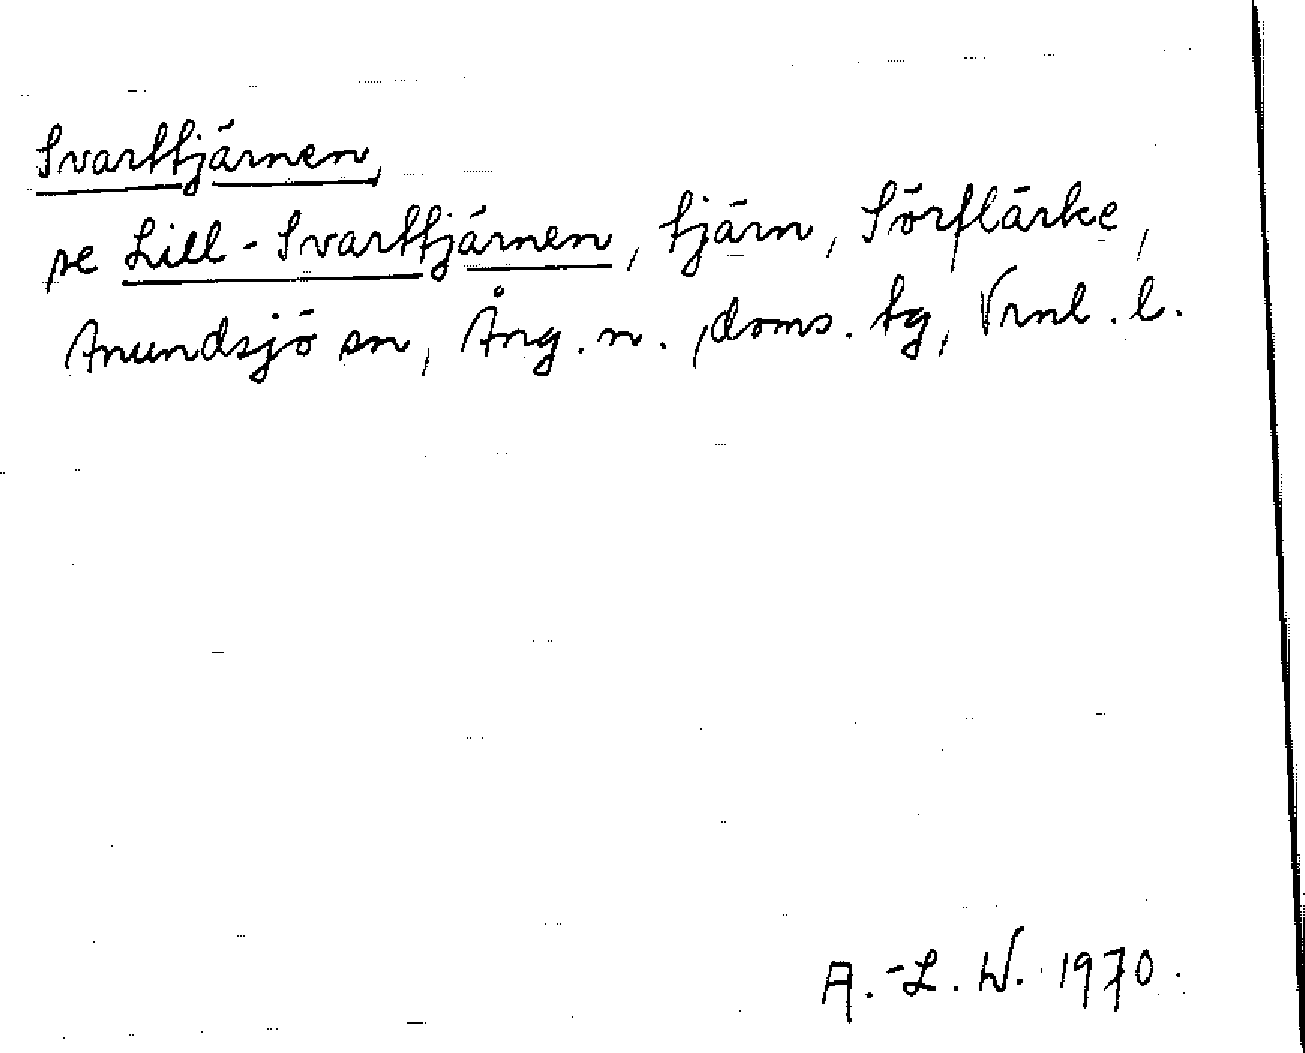 Svarttjärnen,
se Lill-Svarttjärnen, tjärn, Sörflärke,
Anundsjö sn, Ång. n. doms. tg, Vrnl. l.
A.-L. W. 1970.